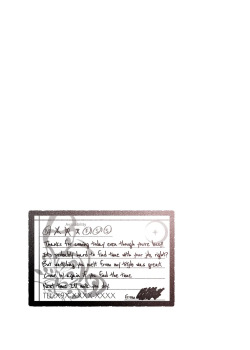 Thanks for coming today even though you're busy.
It's probably hard to find time with your job, right?
But watching you melt from my table was great.
Come by again if you find the time.
Next time I'll
TEL X9X-XXXX-XXXX
From